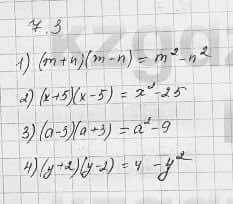 7.3
1) (m+n)(m-n) = m²-n²
2) (x+5)(x-5) = x²-25
3) (a-3)(a+3) = a²-9
4) (y+2)(y-2) = 4-y²